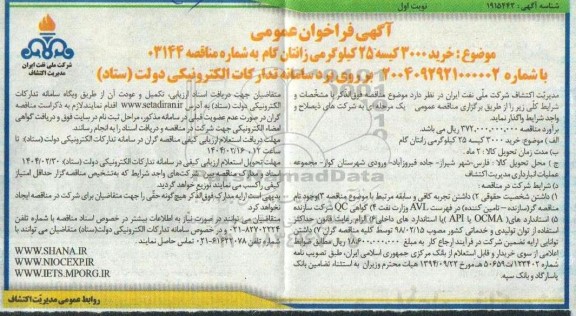 شناسه آگهی: ۱۹۱۵۴۴۳
نوبت اول
آگهی فراخوان عمومی
موضوع: خرید ۳۰۰۰ کیسه ۲۵ کیلوگرمی زانتان گام به شماره مناقصه ۰۳۱۴۴
با شماره ۲۰۰۴۰۹۲۹۲۱۰۰۰۰۰۲ بر روی برد سامانه تدارکات الکترونیکی دولت (ستاد)
شرکت ملی نفت ایران
مدیریت اکتشاف
مدیریت اکتشاف شرکت ملّی نفت ایران در نظر دارد موضوع مناقصه فوق‌الذکر با مشخصات و
شرایط کلّی زیر را از طریق برگزاری مناقصه عمومی یک مرحله‌ای به شرکت های ذیصلاح و
واجد شرایط واگذار نماید.
برآورد مناقصه ۳۷۲,۰۰۰,۰۰۰,۰۰۰ ریال می باشد.
الف) موضوع: خرید ۳۰۰۰ کیسه ۲۵ کیلوگرمی زانتان گام
ب) مدت زمان تحویل کالا: ۲ ماه
ج) محل تحویل کالا: فارس-شهر شیراز- جاده فیروزآباد- ورودی شهرستان کوار- مجموعه
عملیات انبارداری مدیریت اکتشاف
د) شرایط شرکت در مناقصه:
۱) داشتن شخصیت حقوقی ۲) داشتن تجربه کافی و سابقه مرتبط با موضوع مناقصه ۳) وجود نام
مناقصه گر (سازنده-تامین کننده) در فهرست AVL وزارت نفت ۴) گواهی QC شرکت سازنده
۵) استاندارد های (OCMA یا API) یا استاندارد های داخلی ۶) الزام رعایت قانون حداکثر
استفاده از توان تولیدی و خدماتی کشور مصوب ۹۸/۰۲/۱۵ توسط کلیه مناقصه گران ۷) داشتن
توانایی ارایه تضمین شرکت در فرآیند ارجاع کار به مبلغ ۱۸,۶۰۰,۰۰۰,۰۰۰ ریال مطابق ضوابط
اعلامی از سوی خریدار و قابل استعلام از بانک مرکزی جمهوری اسلامی ایران، طبق تصویب نامه
شماره ۱۲۳۴۰۲/ت ۵۰۶۵۹ هـ مورخ ۱۳۹۴/۰۹/۲۲ هیات محترم وزیران به استثناء تضامین بانک
پاسارگاد و بانک سپه.
متقاضیان جهت دریافت اسناد ارزیابی، تکمیل و عودت آن از طریق وبگاه سامانه تدارکات
الکترونیکی دولت (ستاد) به آدرس www.setadiran.ir اقدام نمایند. لازم به ذکراست مناقصه
گران در صورت عدم عضویت قبلی در سامانه مذکور، مراحل ثبت نام در سایت فوق و دریافت گواهی
امضاء الکترونیکی جهت شرکت در مناقصه و دریافت اسناد را به انجام رسانند.
مهلت دریافت استعلام ارزیابی کیفی مناقصه گران در سامانه تدارکات الکترونیکی دولت (ستاد): تا
ساعت ۱۲ ۱۴۰۴/۰۲/۱۶
مهلت تحویل استعلام ارزیابی کیفی در سامانه تدارکات الکترونیکی دولت (ستاد): ۱۴۰۴/۰۲/۳۰
اسناد و مدارک مناقصه بین شرکت‌های واجد شرایط که نتیجه‌بخش مناقصه‌گزار حداقل امتیاز
کیفی را کسب می نمایند توزیع خواهد گردید.
بدیهی است ارایه مدارک فوق الذکر هیچ گونه حقّی را جهت متقاضیان برای شرکت در مناقصه ایجاد
نخواهد کرد.
متقاضیان می توانند در صورت نیاز به اطلاعات بیشتر در خصوص اسناد مناقصه با شماره تلفن
۰۲۱-۸۲۷۰۲۲۲۴ و در خصوص سامانه تدارکات الکترونیکی دولت (ستاد) با شماره تلفن
۰۲۱-۶۱۶۲۲۰۷۸ تماس حاصل نمایند.
WWW.SHANA.IR
WWW.NIOCEXP.IR
WWW.IETS.MPORG.IR
روابط عمومی مدیریّت اکتشاف